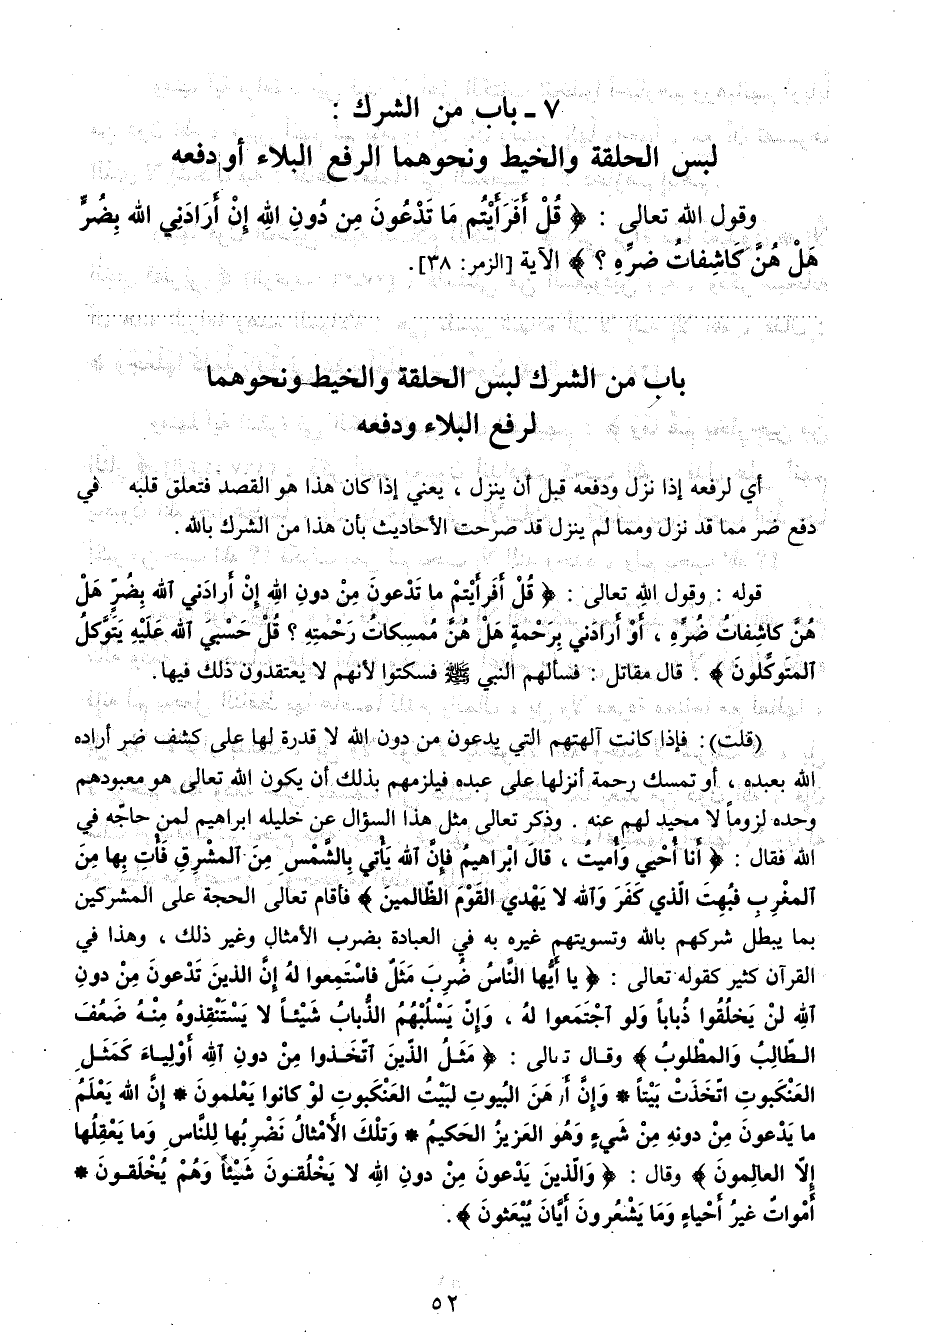 ٧ ـ باب من الشرك :
لبس الحلقة والخيط ونحوهما الرفع البلاء أو دفعه
وقول الله تعالى : ﴿ قُلْ أَفَرَأَيْتُم مَا تَدْعُونَ مِن دُونِ اللهِ إِنْ أَرَادَنِي الله بِضُرٍّ
هَلْ هُنَّ كَاشِفاتُ ضرِّهِ ؟ ﴾ الآية [الزمر: ٣٨].
باب من الشرك لبس الحلقة والخيط ونحوهما
لرفع البلاء ودفعه
أي لرفعه إذا نزل ودفعه قبل أن ينزل ، يعني إذا كان هذا هو القصد فتعلق قلبه في
دفع ضر مما قد نزل ومما لم ينزل قد صرحت الأحاديث بأن هذا من الشرك بالله .
قوله : وقول اللهِ تعالى : ﴿ قُلْ أَفَرَأَيتمْ ما تَدْعونَ مِنْ دُونِ اللهِ إِنْ أَرادَني ٱلله بِضُرٍّ هَلْ
هُنَّ كاشِفات ضُرِّهِ ، أَوْ أرادَني بِرَحْمةٍ هَلْ هُنَّ مُمسِكاتُ رَحْمتِهِ ؟ قُلْ حَسْبيَ ٱلله عَلَيْهِ يَتَوَّكلُ
ٱلمتَوكِّلونَ ﴾ . قال مقاتل : فسألهم النبي ﷺ فسكتوا لأنهم لا يعتقدون ذلك فيها.
(قلت): فإذا كانت آلهتهم التي يدعون من دون الله لا قدرة لها على كشف ضر أراده
الله بعبده ، أو تمسك رحمة أنزلها على عبده فيلزمهم بذلك أن يكون الله تعالى هو معبودهم
وحده لزوماً لا محيد لهم عنه . وذكر تعالى مثل هذا السؤال عن خليله ابراهيم لمن حاجّه في
الله فقال : ﴿ أَنا أُحْيي وَأُميتُ ، قالَ ابْراهيمُ فإِنَّ ٱلله يَأْتي بِالشَّمْسِ مِنَ ٱلمشْرِقِ فَأْتِ بِها مِنَ
ٱلمغْرِبِ فَبُهِتَ الَّذي كَفَرَ وَٱلله لا يَهْدي القَوْمَ الظّالمينَ ﴾ فأقام تعالى الحجة على المشركين
بما يبطل شركهم بالله وتسويتهم غيره به في العبادة بضرب الأمثال وغير ذلك ، وهذا في
القرآن كثير كقوله تعالى : ﴿ يا أَيُّها النَّاسُ ضُرِبَ مَثَلٌ فَاسْتَمِعوا لهُ إِنَّ الذينَ تَدْعونَ مِنْ دونِ
ٱللهِ لَنْ يَخلُقُوا ذُباباً وَلو ٱجْتَمَعوا لهُ ، وَإِنّ يَسْلُبْهُمُ الذُّبابُ شَيْئاً لا يَسْتَنْقِذوهُ مِنْهُ ضَعُفَ
الطّالِبُ وَالمطْلوبُ ﴾ وقال تعالى : ﴿ مَثَلُ الذَّينَ ٱتَّخَذوا مِنْ دونِ ٱللهِ أَوْلِياءَ كَمَثَلِ
العَنْكَبوتِ اتّخَذَتْ بَيْتاً * وَإِنَّ أَوْهَنَ البُيوتِ لَبَيْتُ العَنْكبوتِ لوْ كانوا يَعْلمونَ * إِنَّ الله يَعْلَمُ
ما يَدْعونَ مِنْ دونهِ مِنْ شَيءٍ وَهُوَ العَزيزُ الحَكيمُ * وَتلْكَ الأَمْثالُ نَضْرِبُها لِلنّاسِ وَما يَعْقِلُها
إِلاّ العالِمونَ ﴾ وقال : ﴿ وَالّذينَ يَدْعونَ مِنْ دونِ اللهِ لا يَخْلُقونَ شَيْئاً وَهُمْ يُخْلَقونَ *
أَمْواتٌ غيرُ أَحْياءٍ وَمَا يَشْعُرونَ أَيَّانَ يُبْعَثونَ ﴾ .
٥٢